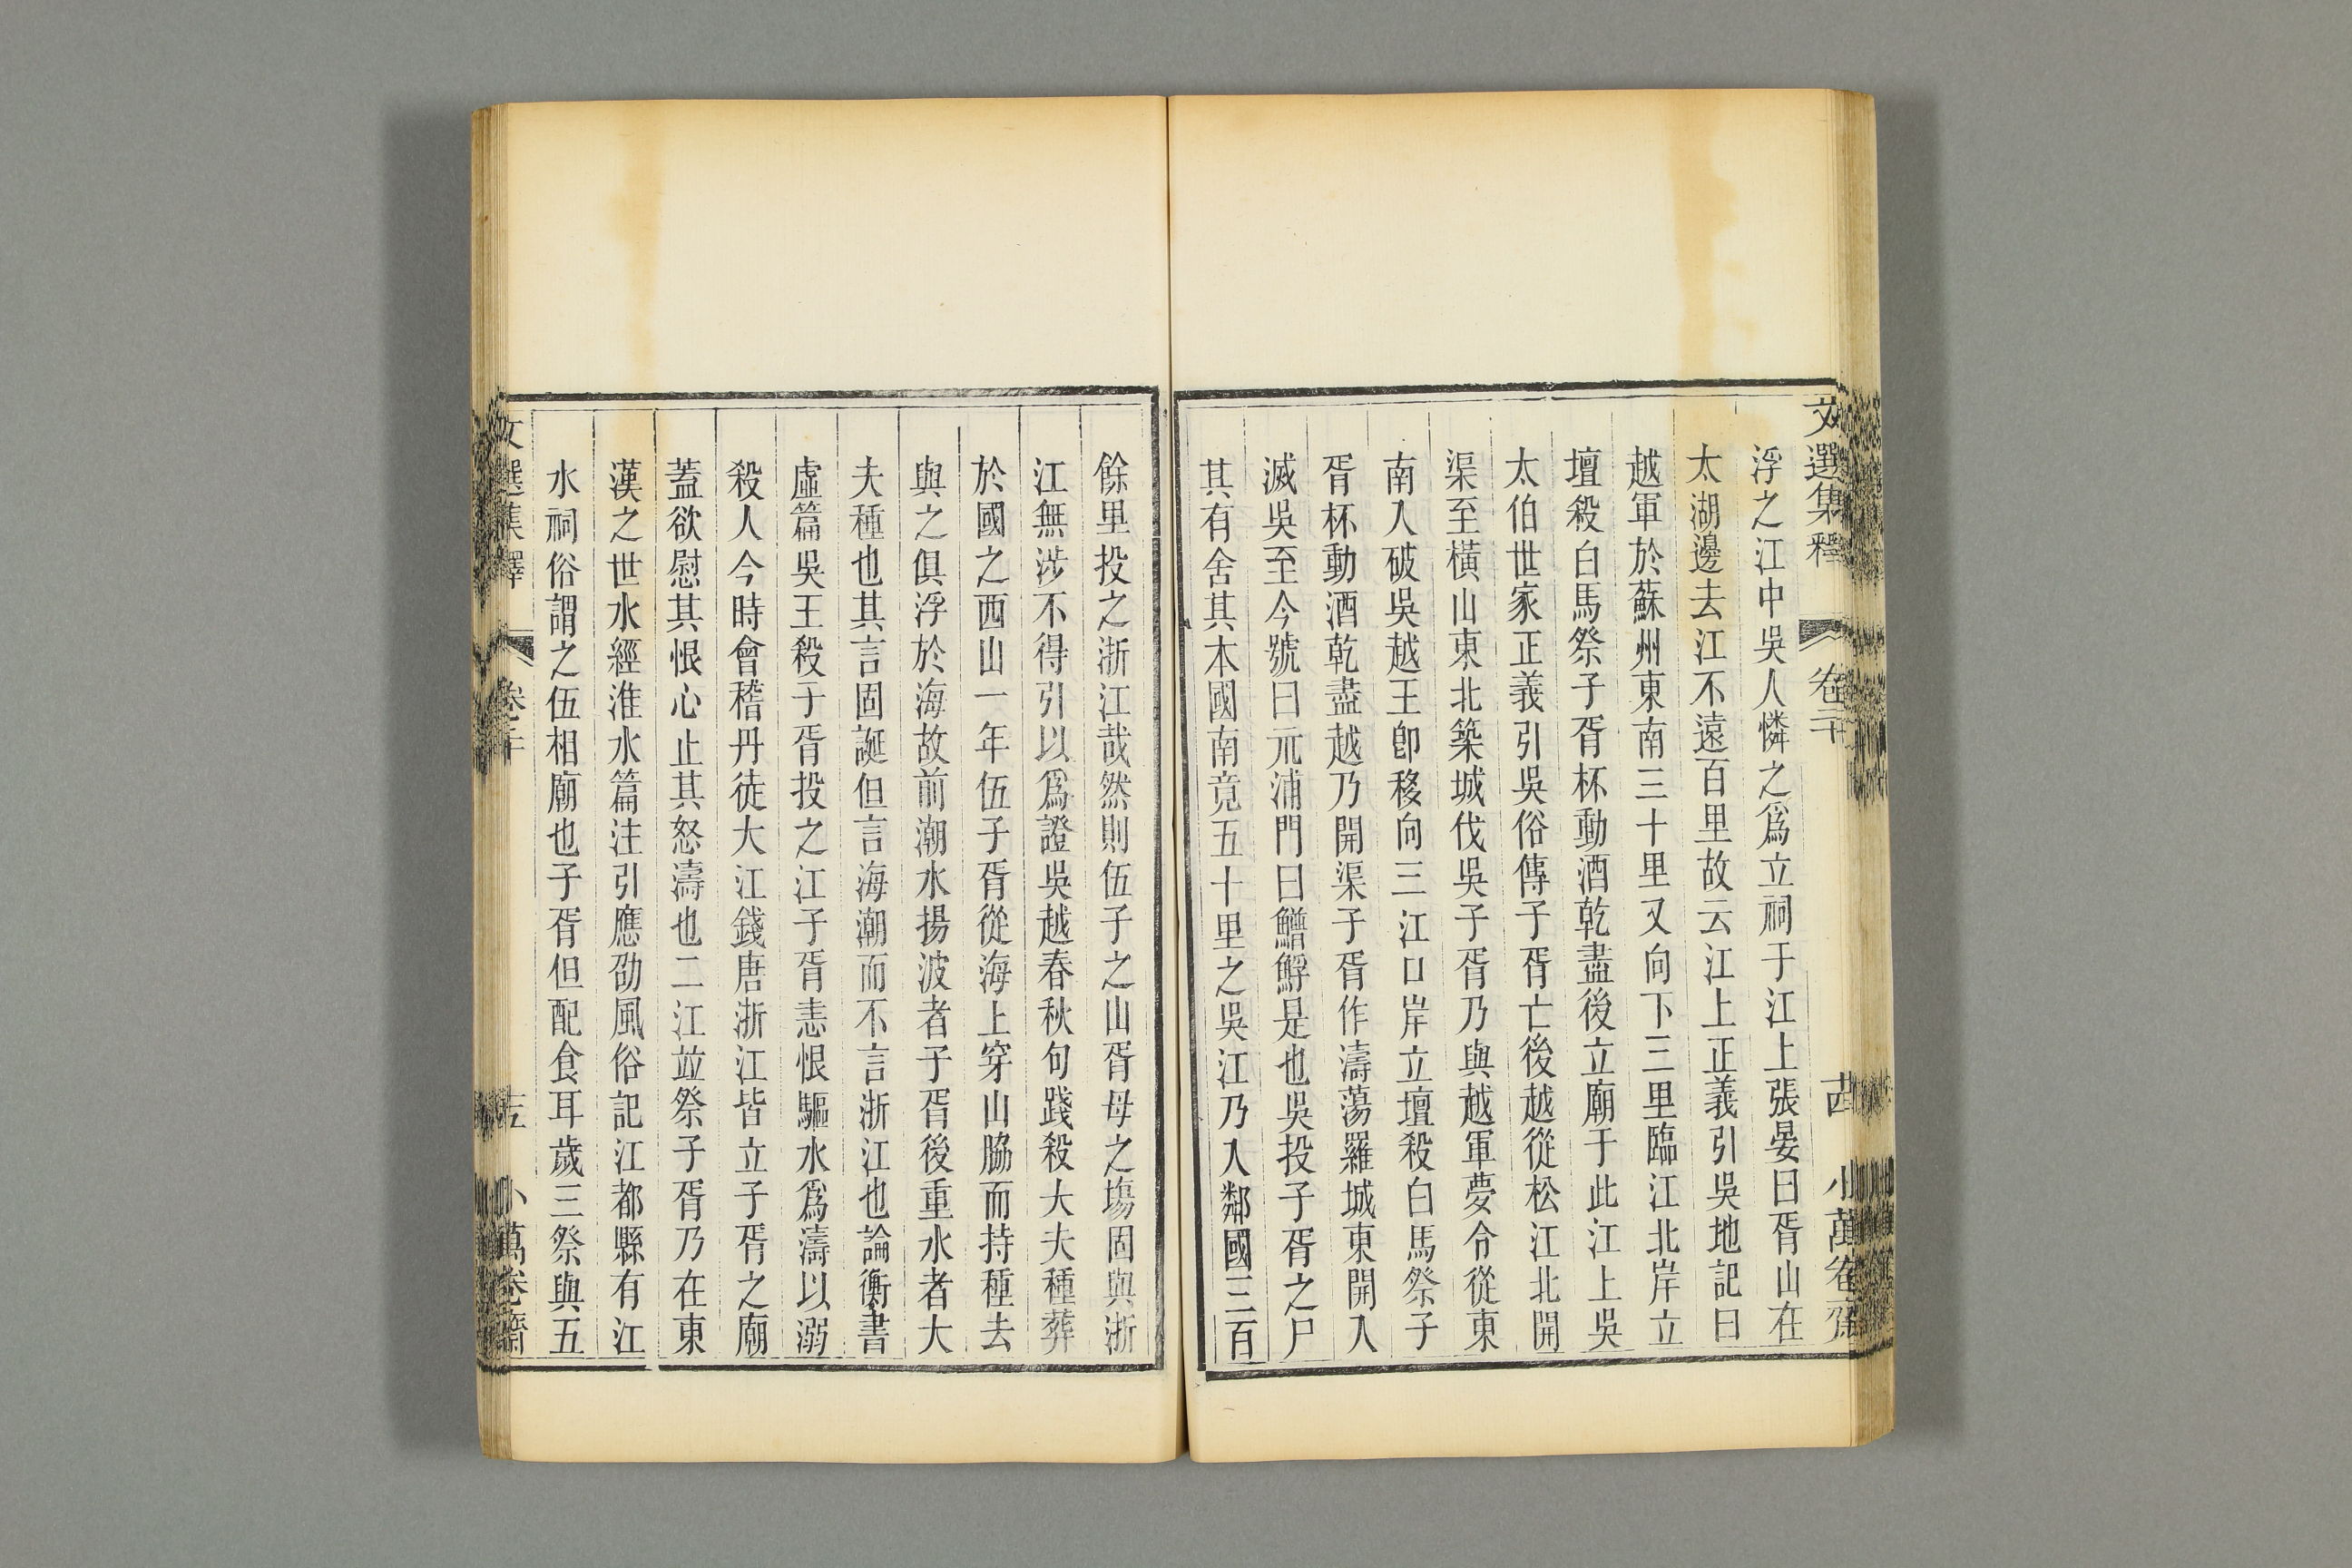 文選集釋 卷二十 十四 小萬卷齋
浮之江中吳人憐之爲立祠于江上張晏曰胥山在
太湖邊去江不遠百里故云江上正義引吳地記曰
越軍於蘇州東南三十里又向下三里臨江北岸立
壇殺白馬祭子胥杯動酒乾盡後立廟于此江上吳
太伯世家正義引吳俗傳子胥亡後越從松江北開
渠至橫山東北築城伐吳子胥乃與越軍夢令從東
南入破吳越王卽移向三江口岸立壇殺白馬祭子
胥杯動酒乾盡越乃開渠子胥作濤蕩羅城東開入
滅吳至今號曰元浦門曰鱛鯙是也吳投子胥之尸
其有舍其本國南竟五十里之吳江乃入鄰國三百
餘里投之浙江哉然則伍子之山胥母之塲固與浙
江無涉不得引以爲證吳越春秋句踐殺大夫種葬
於國之西山一年伍子胥從海上穿山脇而持種去
與之俱浮於海故前潮水揚波者子胥後重水者大
夫種也其言固誕但言海潮而不言浙江也論衡書
虛篇吳王殺子胥投之江子胥恚恨驅水爲濤以溺
殺人今時會稽丹徒大江錢唐浙江皆立子胥之廟
蓋欲慰其恨心止其怒濤也二江竝祭子胥乃在東
漢之世水經淮水篇注引應劭風俗記江都縣有江
水祠俗謂之伍相廟也子胥但配食耳歲三祭與五
文選集釋 卷二十 小萬卷齋